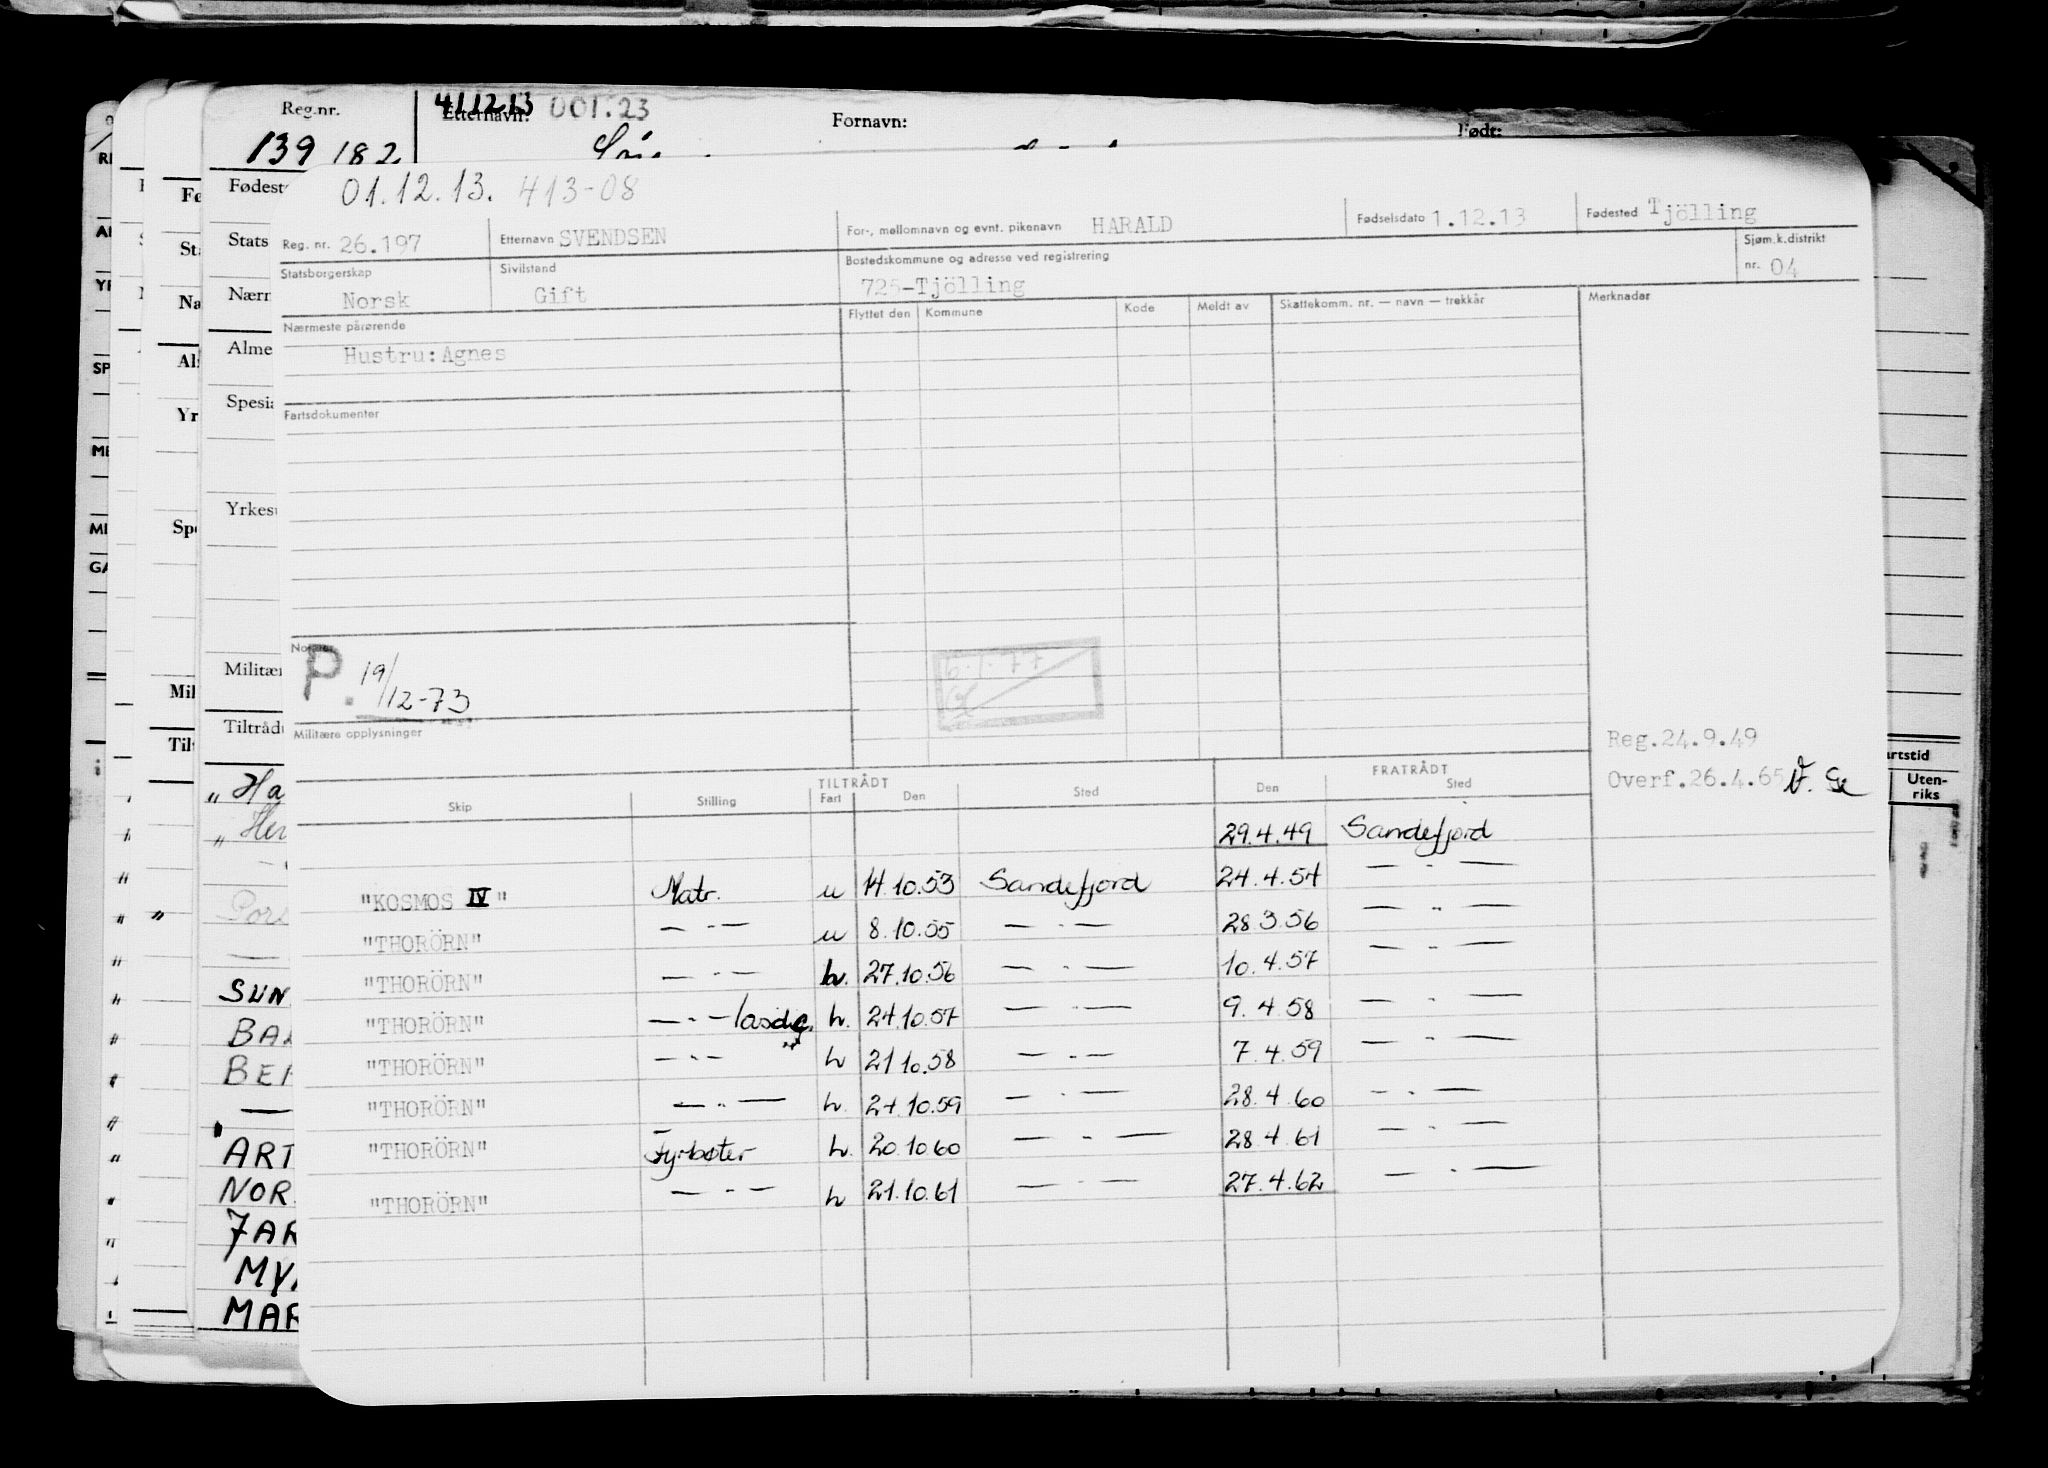 Reg.nr. 411213 001.23
Etternavn: Fornavn: Født:
139 182
Fødest
01.12.13. 413-08
Stats
Reg. nr. 26.197 Etternavn SVENDSEN For-, mellomnavn og evnt. pikenavn HARALD Fødselsdato 1.12.13 Fødested Tjölling
Statsborgerskap Norsk Sivilstand Gift Bostedskommune og adresse ved registrering 725-Tjölling Sjøm.k.distrikt nr. 04
Nærmeste pårørende Flyttet den Kommune Kode Meldt av Skattekomm. nr. — navn — trekkår Merknader
Hustru: Agnes
Fartsdokumenter
Notater
P. 19/12-73
6.1.77
Militære opplysninger
Reg.24.9.49
Overf.26.4.65
TILTRÅDT FRATRÅDT
Skip Stilling Fart Den Sted Den Sted
29.4.49 Sandefjord
"KOSMOS IV" Matr. u 14.10.53 Sandefjord 24.4.54 — " —
"THORÖRN" — " — u 8.10.55 — " — 28.3.56 — " —
"THORÖRN" — " — h. 27.10.56 — " — 10.4.57 — " —
"THORÖRN" — " — h. 24.10.57 — " — 9.4.58 — " —
"THORÖRN" — " — h 21.10.58 — " — 7.4.59 — " —
"THORÖRN" — " — h. 24.10.59 — " — 28.4.60 — " —
"THORÖRN" Fyrbøter h. 20.10.60 — " — 28.4.61 — " —
"THORÖRN" — " — h 21.10.61 — " — 27.4.62 — " —
Nærm
Alme
Spesia
Yrkes
Militær
Tiltråd
Ha
Her
SUN
BEA
ART
NOR
MAR
artstid
Uten-
riks